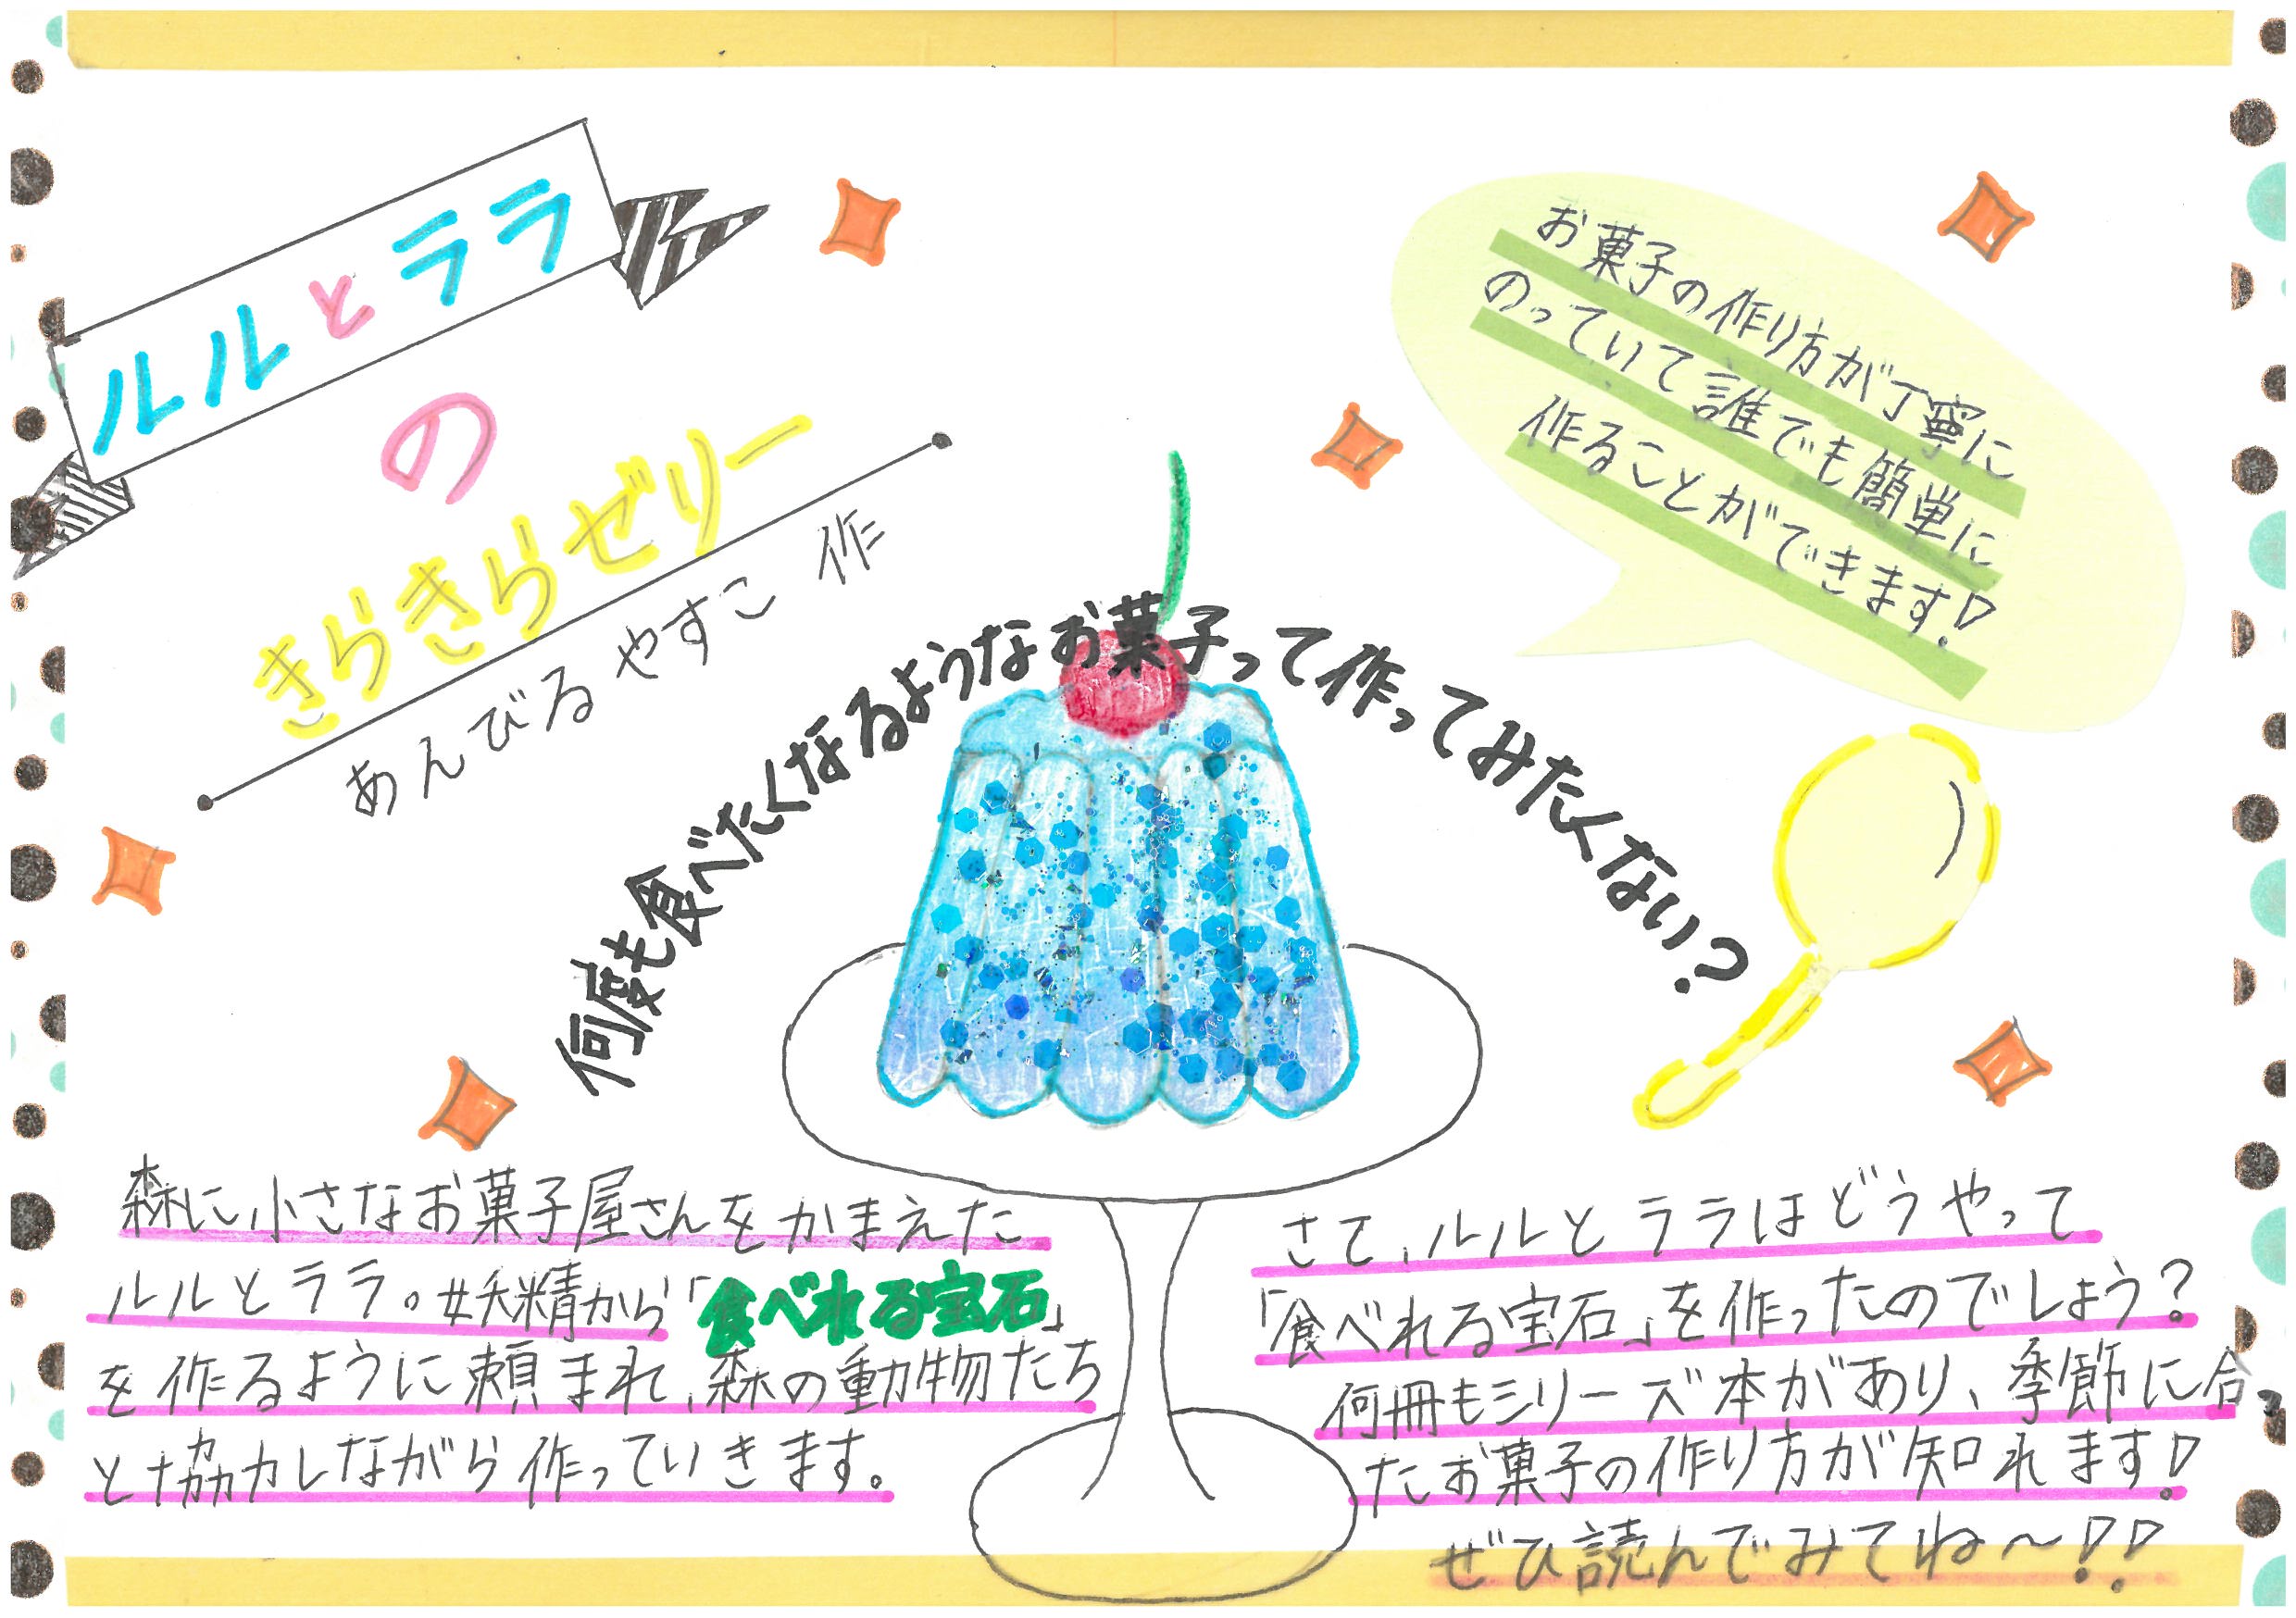 ルルとララ
の
きらきらゼリー
あんびるやすこ 作
お菓子の作り方が丁寧に
のっていて誰でも簡単に
作ることができます!
何度も食べたくなるようなお菓子って作ってみたくない?
森に小さなお菓子屋さんをかまえた
ルルとララ。妖精から「食べれる宝石」
を作るように頼まれ、森の動物たち
と協力しながら作っていきます。
さて、ルルとララはどうやって
「食べれる宝石」を作ったのでしょう?
何冊もシリーズ本があり、季節に合っ
たお菓子の作り方が知れます!
ぜひ読んでみてね〜!!